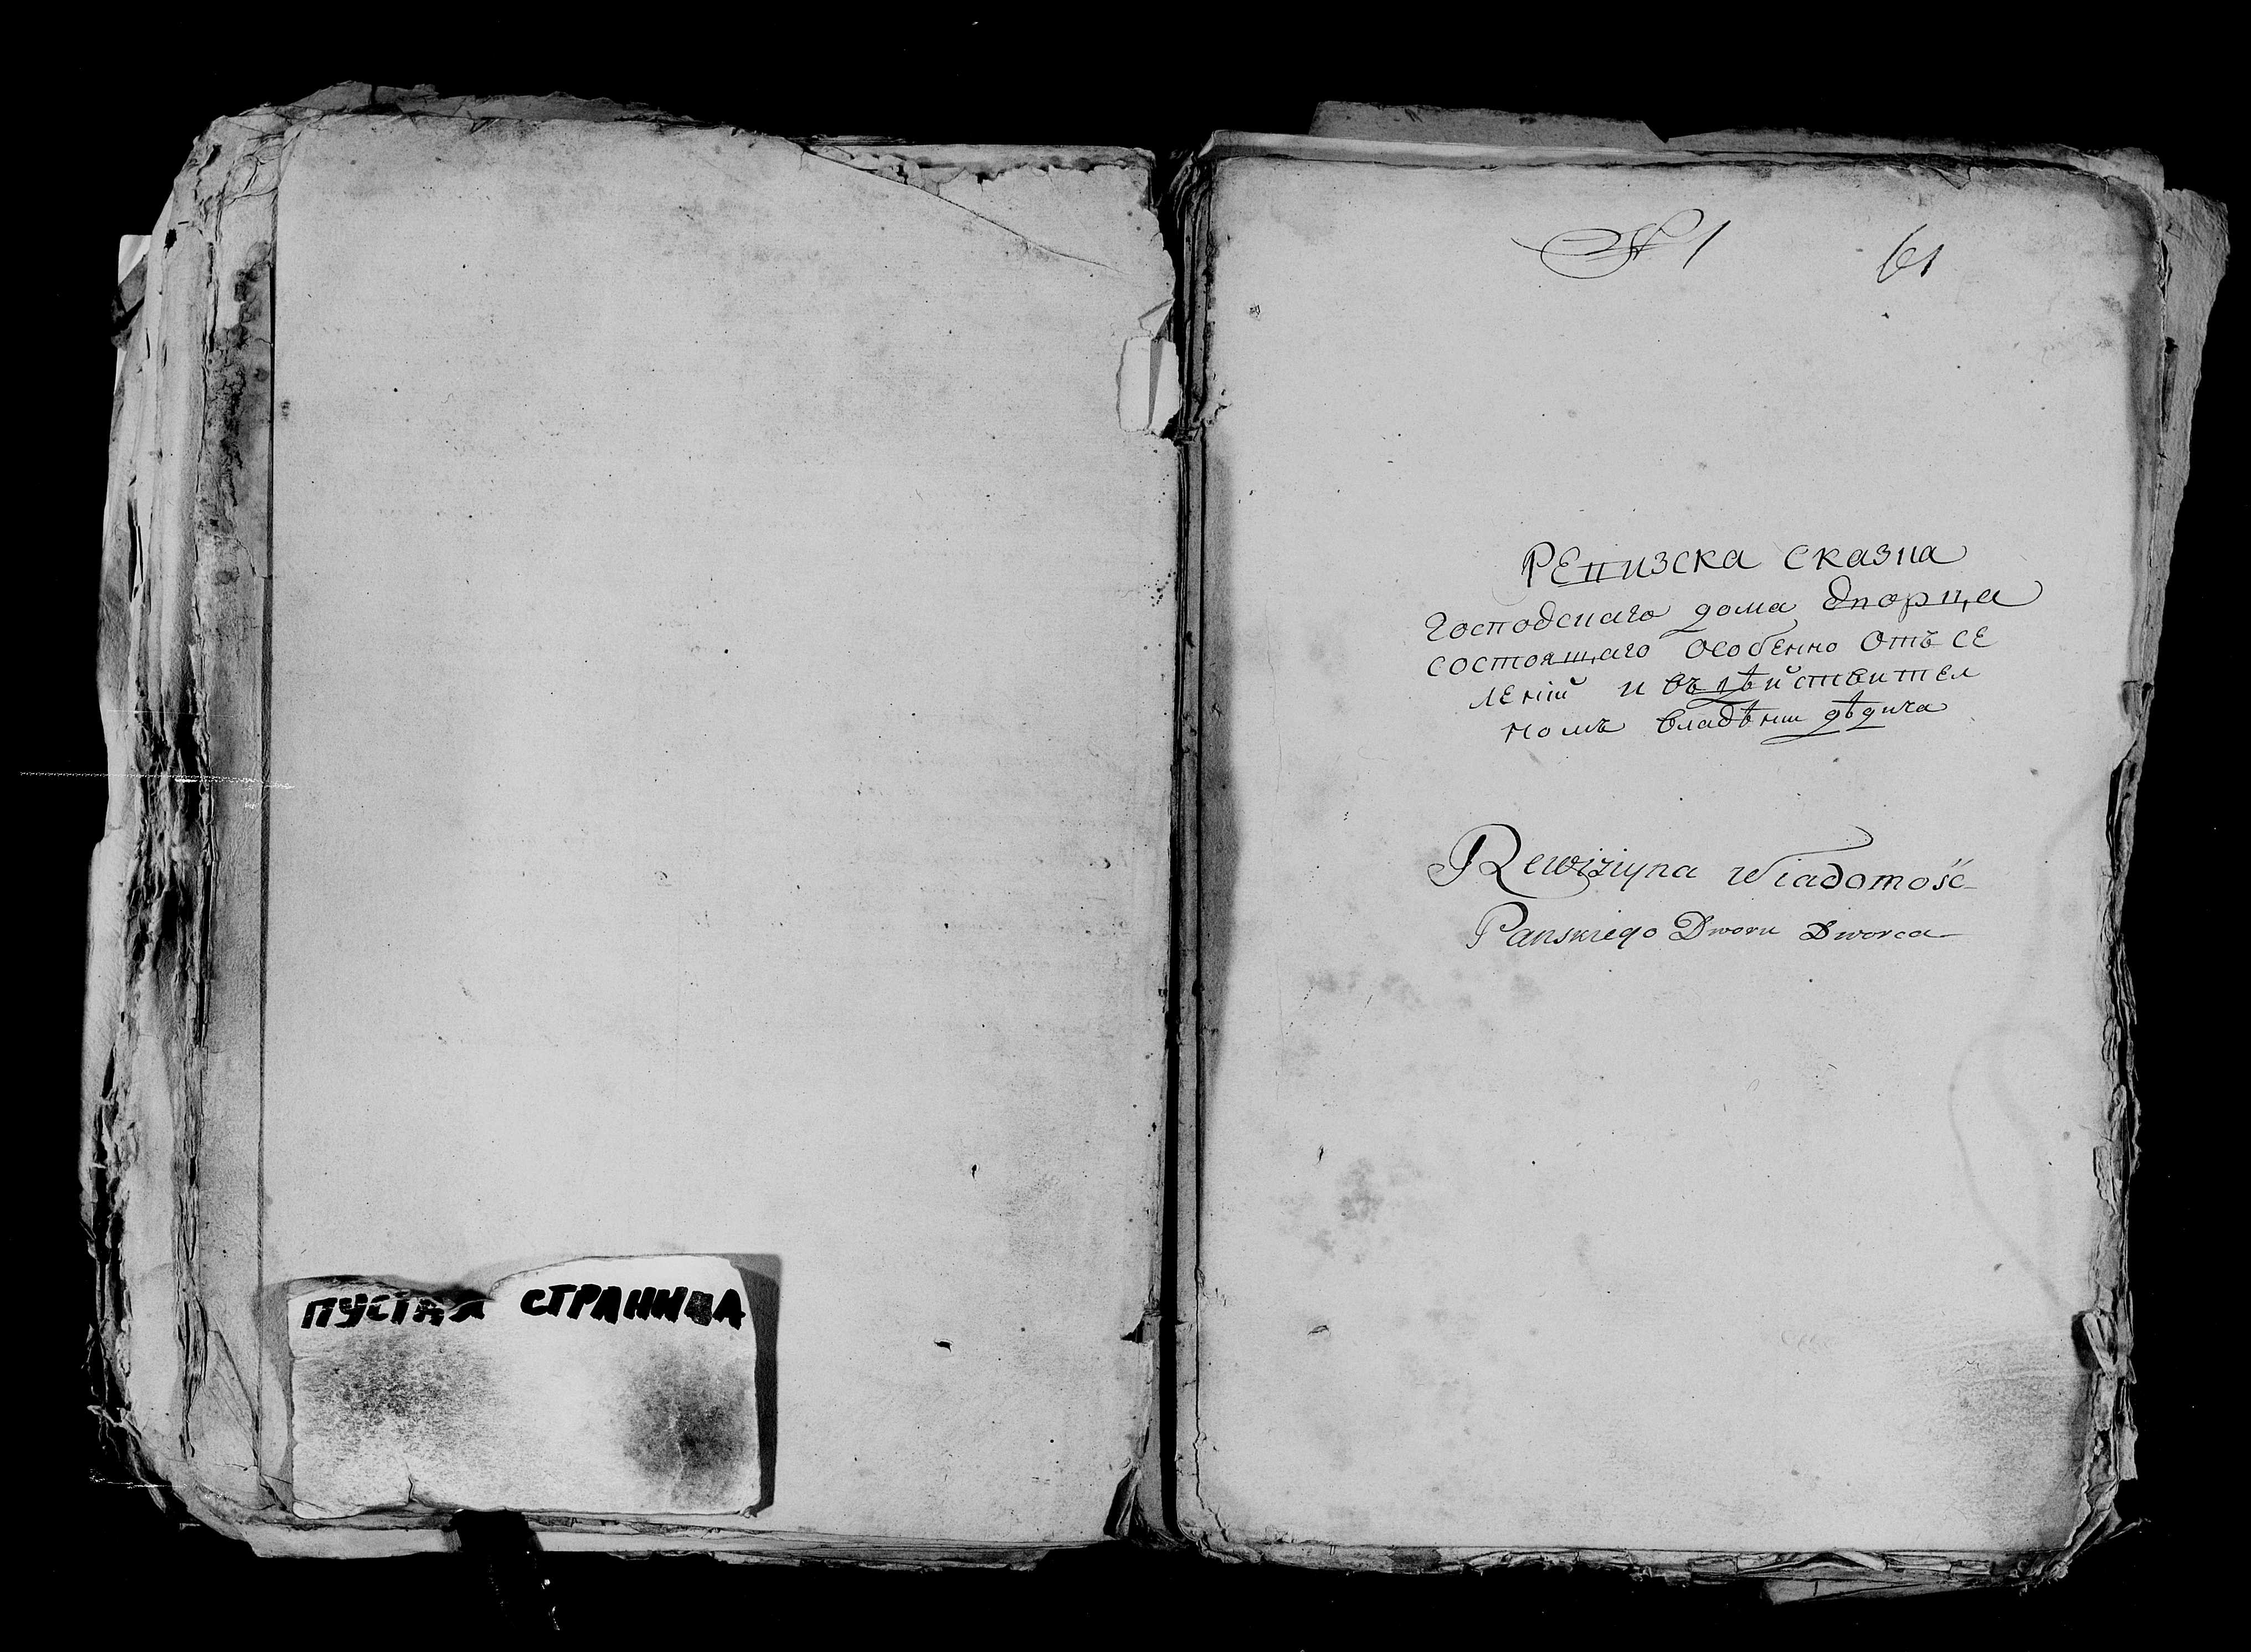 ПУСТАЯ СТРАНИЦА
№ 1
61
Ревизска сказка
господскаго дома Дворца
состоящаго особенно отъ се
леній и въ дѣйствител
номъ владѣнии дѣдича
Rewizyina Wiadomość
Panskiego Dworu Dworca